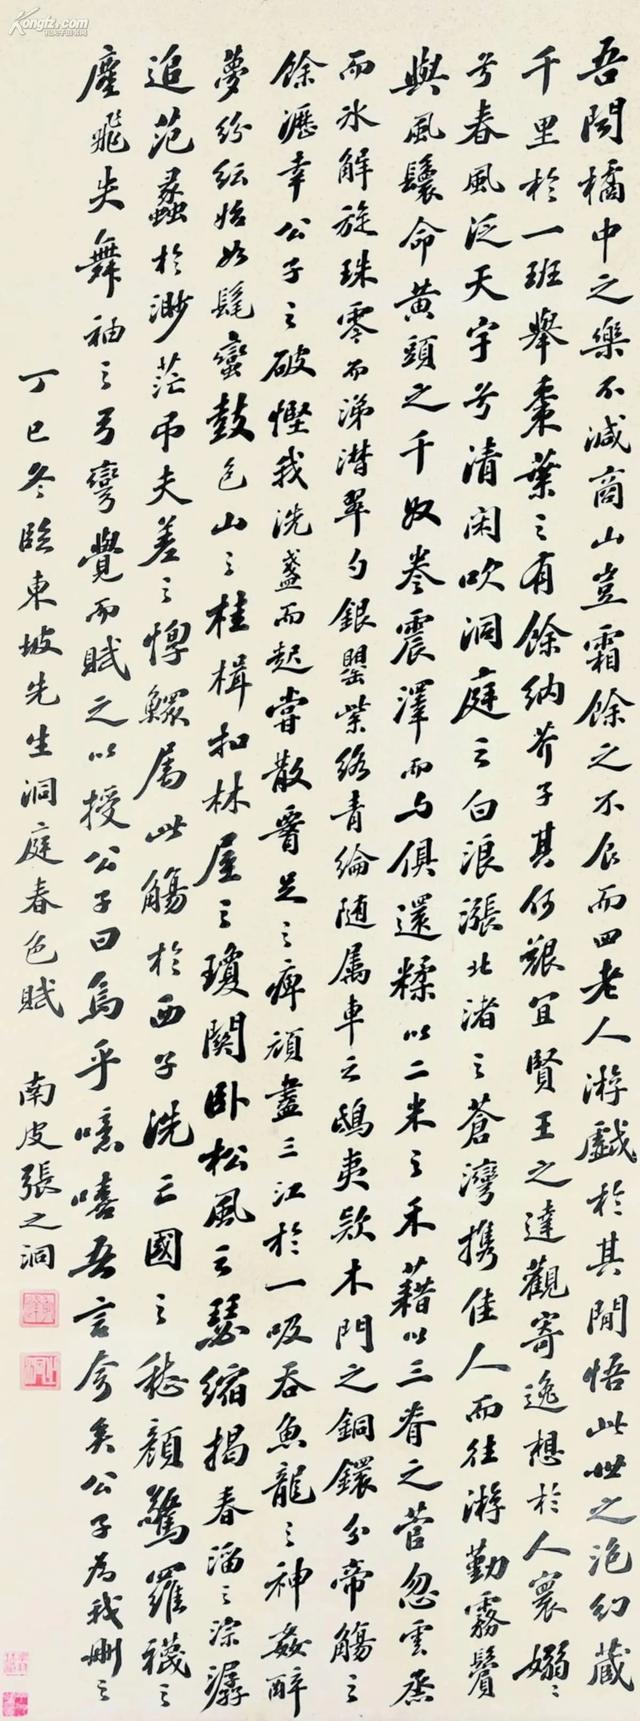 吾聞橘中之樂不減商山豈霜餘之不食而四老人游戲於其間悟此世之泡幻藏
千里於一班舉棗葉之有餘納芥子其何艱宜賢王之達觀寄逸想於人寰嫋〻
兮春風泛天宇兮清閑吹洞庭之白浪漲北渚之蒼灣携佳人而往游勤霧鬢
與風鬟命黃頭之千奴卷震澤而与俱還糅以二米之禾藉以三脊之菅忽雲蒸
而冰解旋珠零而涕潸翠勺銀罌紫絡青綸随属車之鴟夷款木門之銅鐶分帝觴之
餘瀝幸公子之破慳我洗盞而起嘗散署足之痺頑盡三江於一吸吞魚龍之神姦醉
夢紛紜始如髦蠻鼓包山之桂楫扣林屋之瓊關卧松風之瑟縮揭春溜之淙潺
追范蠡於渺茫弔夫差之惸鰥屬此觴於西子洗亡國之愁顏驚羅襪之
塵飛失舞袖之弓彎覺而賦之以授公子曰烏乎噫嘻吾言夸矣公子為我刪之
丁巳冬臨東坡先生洞庭春色賦 南皮張之洞
Kongfz.com